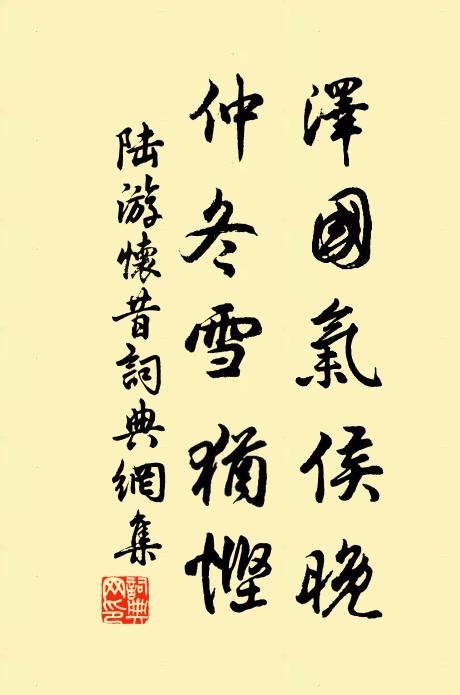 澤國氣侯晚
仲冬雪猶慳
陸游懷昔詞典網集
詞典網印